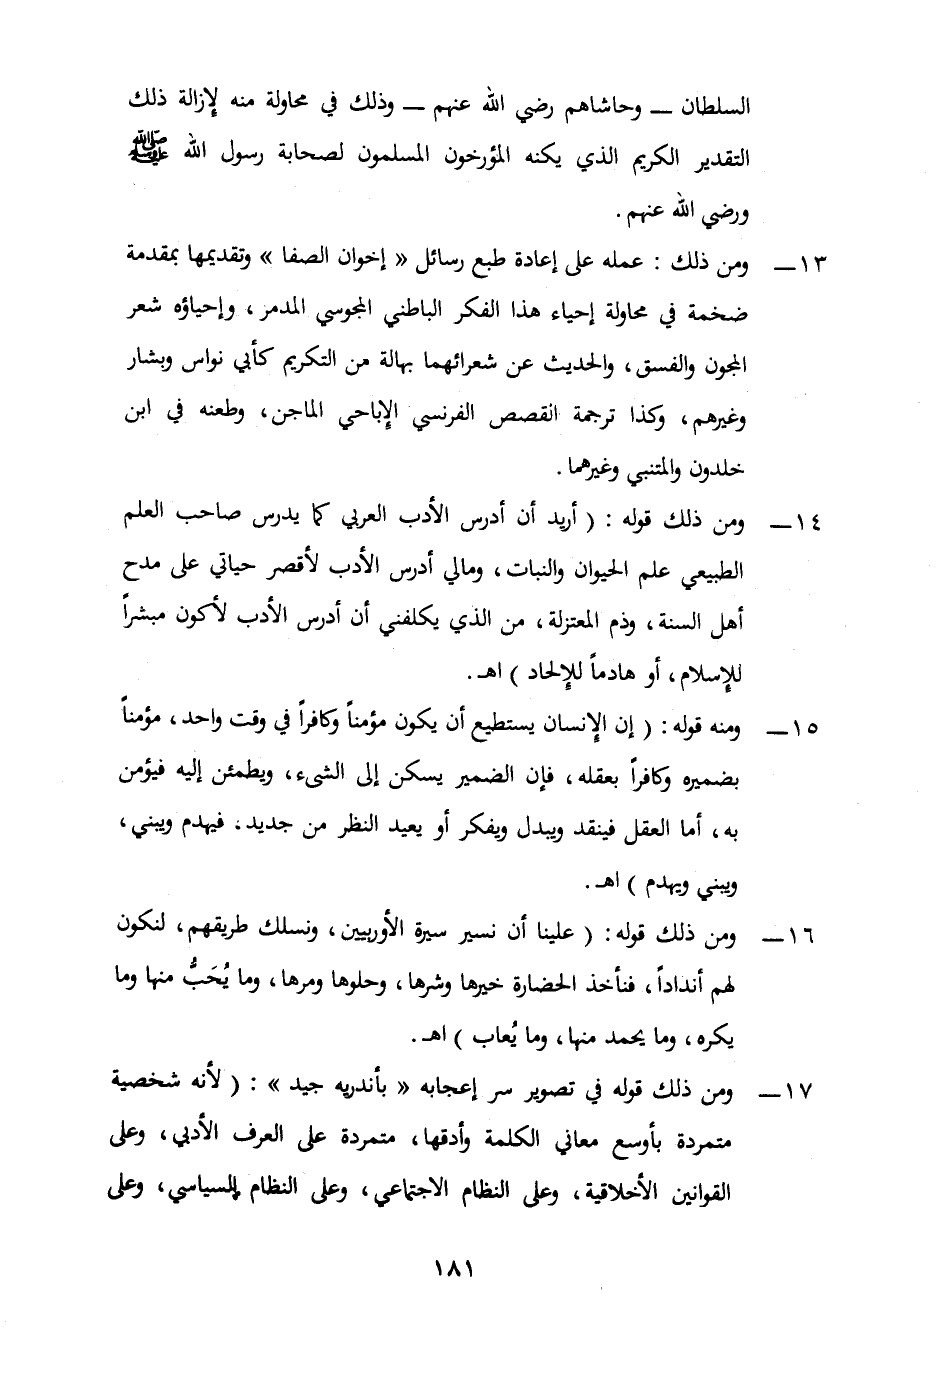 السلطان ــ وحاشاهم رضي الله عنهم ــ وذلك في محاولة منه لإزالة ذلك
التقدير الكريم الذي يكنه المؤرخون المسلمون لصحابة رسول الله ﷺ
ورضي الله عنهم.
١٣ــ ومن ذلك : عمله على إعادة طبع رسائل « إخوان الصفا » وتقديمها بمقدمة
ضخمة في محاولة إحياء هذا الفكر الباطني المجوسي المدمر، وإحياؤه شعر
المجون والفسق، والحديث عن شعرائهما بهالة من التكريم كأبي نواس وبشار
وغيرهم، وكذا ترجمة القصص الفرنسي الإباحي الماجن، وطعنه في ابن
خلدون والمتنبي وغيرهما.
١٤ــ ومن ذلك قوله : ( أريد أن أدرس الأدب العربي كما يدرس صاحب العلم
الطبيعي علم الحيوان والنبات، ومالي أدرس الأدب لأقصر حياتي على مدح
أهل السنة، وذم المعتزلة، من الذي يكلفني أن أدرس الأدب لأكون مبشراً
للإسلام، أو هادماً للإلحاد ) اهـ.
١٥ــ ومنه قوله: ( إن الإنسان يستطيع أن يكون مؤمناً وكافراً في وقت واحد، مؤمناً
بضميره وكافراً بعقله، فإن الضمير يسكن إلى الشيء، ويطمئن إليه فيؤمن
به، أما العقل فينقد ويبدل ويفكر أو يعيد النظر من جديد، فيهدم ويبني،
ويبني ويهدم ) اهـ.
١٦ــ ومن ذلك قوله: ( علينا أن نسير سيرة الأوربيين، ونسلك طريقهم، لنكون
لهم أنداداً، فنأخذ الحضارة خيرها وشرها، وحلوها ومرها، وما يُحَبُّ منها وما
يكره، وما يحمد منها، وما يُعاب ) اهـ.
١٧ــ ومن ذلك قوله في تصوير سر إعجابه « بأندريه جيد » : ( لأنه شخصية
متمردة بأوسع معاني الكلمة وأدقها، متمردة على العرف الأدبي، وعلى
القوانين الأخلاقية، وعلى النظام الاجتماعي، وعلى النظام السياسي، وعلى
١٨١